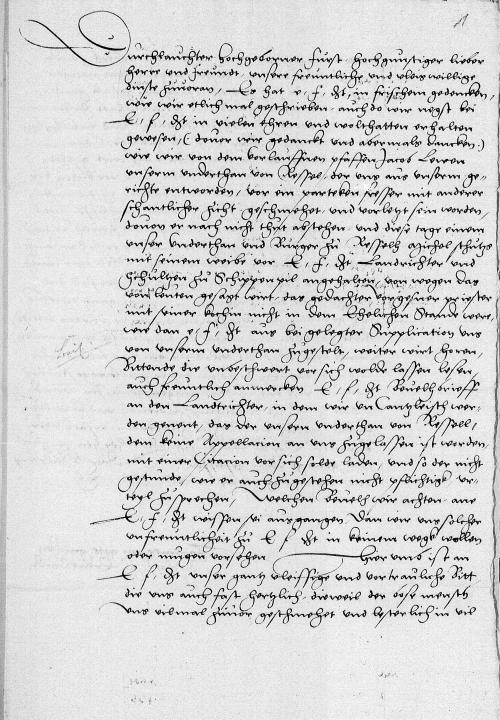 Durchlauchter Hochgeborner Furst, hochgunstiger lieber
herre und freundt, unsere freuntliche und vleis willige
dinste zuvoran, Es hat e. f. dt. in frischem gedencken,
wie wir etlich mal geschrieben, auch do wir negst bei
E. f. dt. in vielen Ehren und wolthatten erhalten
gewesen, (douor wir gedanckt und abermals dancken:)
wie wir von dem vorlauffnen pfaffen Jacob
unserm underthan von Ressel, der uns aus unserm ge-
richte entworden, vor ein fresser mit anderer
schantlicher zucht geschmehet und vorletzt sein worden,
douon er nach nicht thut abstehen, und diese tage einem
unser Underthan und Burger zu Ressell Michel Schutz
mit seinem weibe vor E. f. dt. Landrichter und
Schultzen zu Schippenpil angehalten, von wegen das
von leuten gesagt wirt, das gedachter priester
mit seiner kochin nicht in dem Ehelichen Stande were,
wie dan e. f. dt. aus bei gelegter Supplication uns
von unserm underthan zugestelt, weiter wirt horen,
Bittende die unbeschwert vor sich wolde lassen lesen,
auch freuntlich anmercken E. f. dt. Beuelhbrieff
an den Landrichter, in dem wir un Cantzleisch wer-
den genent, das der unsern underthan von Ressell,
dem keine Appellacion an uns zugelassen ist worden,
mit einer Citacion vor sich solde laden, und so der nicht
gestunde, wie er auch zugestehen nicht pflichtig ur-
teyl zusprechen, Welchen Beuelh wir achten ane
E. f. dt. wissen sei ausgangen, Dan wir uns solcher
unfreuntlicheit zu E. f. dt. in keinem wege wollen
oder mugen vorsehen Hier umb ist an
E. f. dt. unser gantz vleissige und vortrauliche Bitt,
die uns auch fast hertzlich, dieweil der bose mensch
uns vilmal zuuor geschmehet und lesterlich in vil